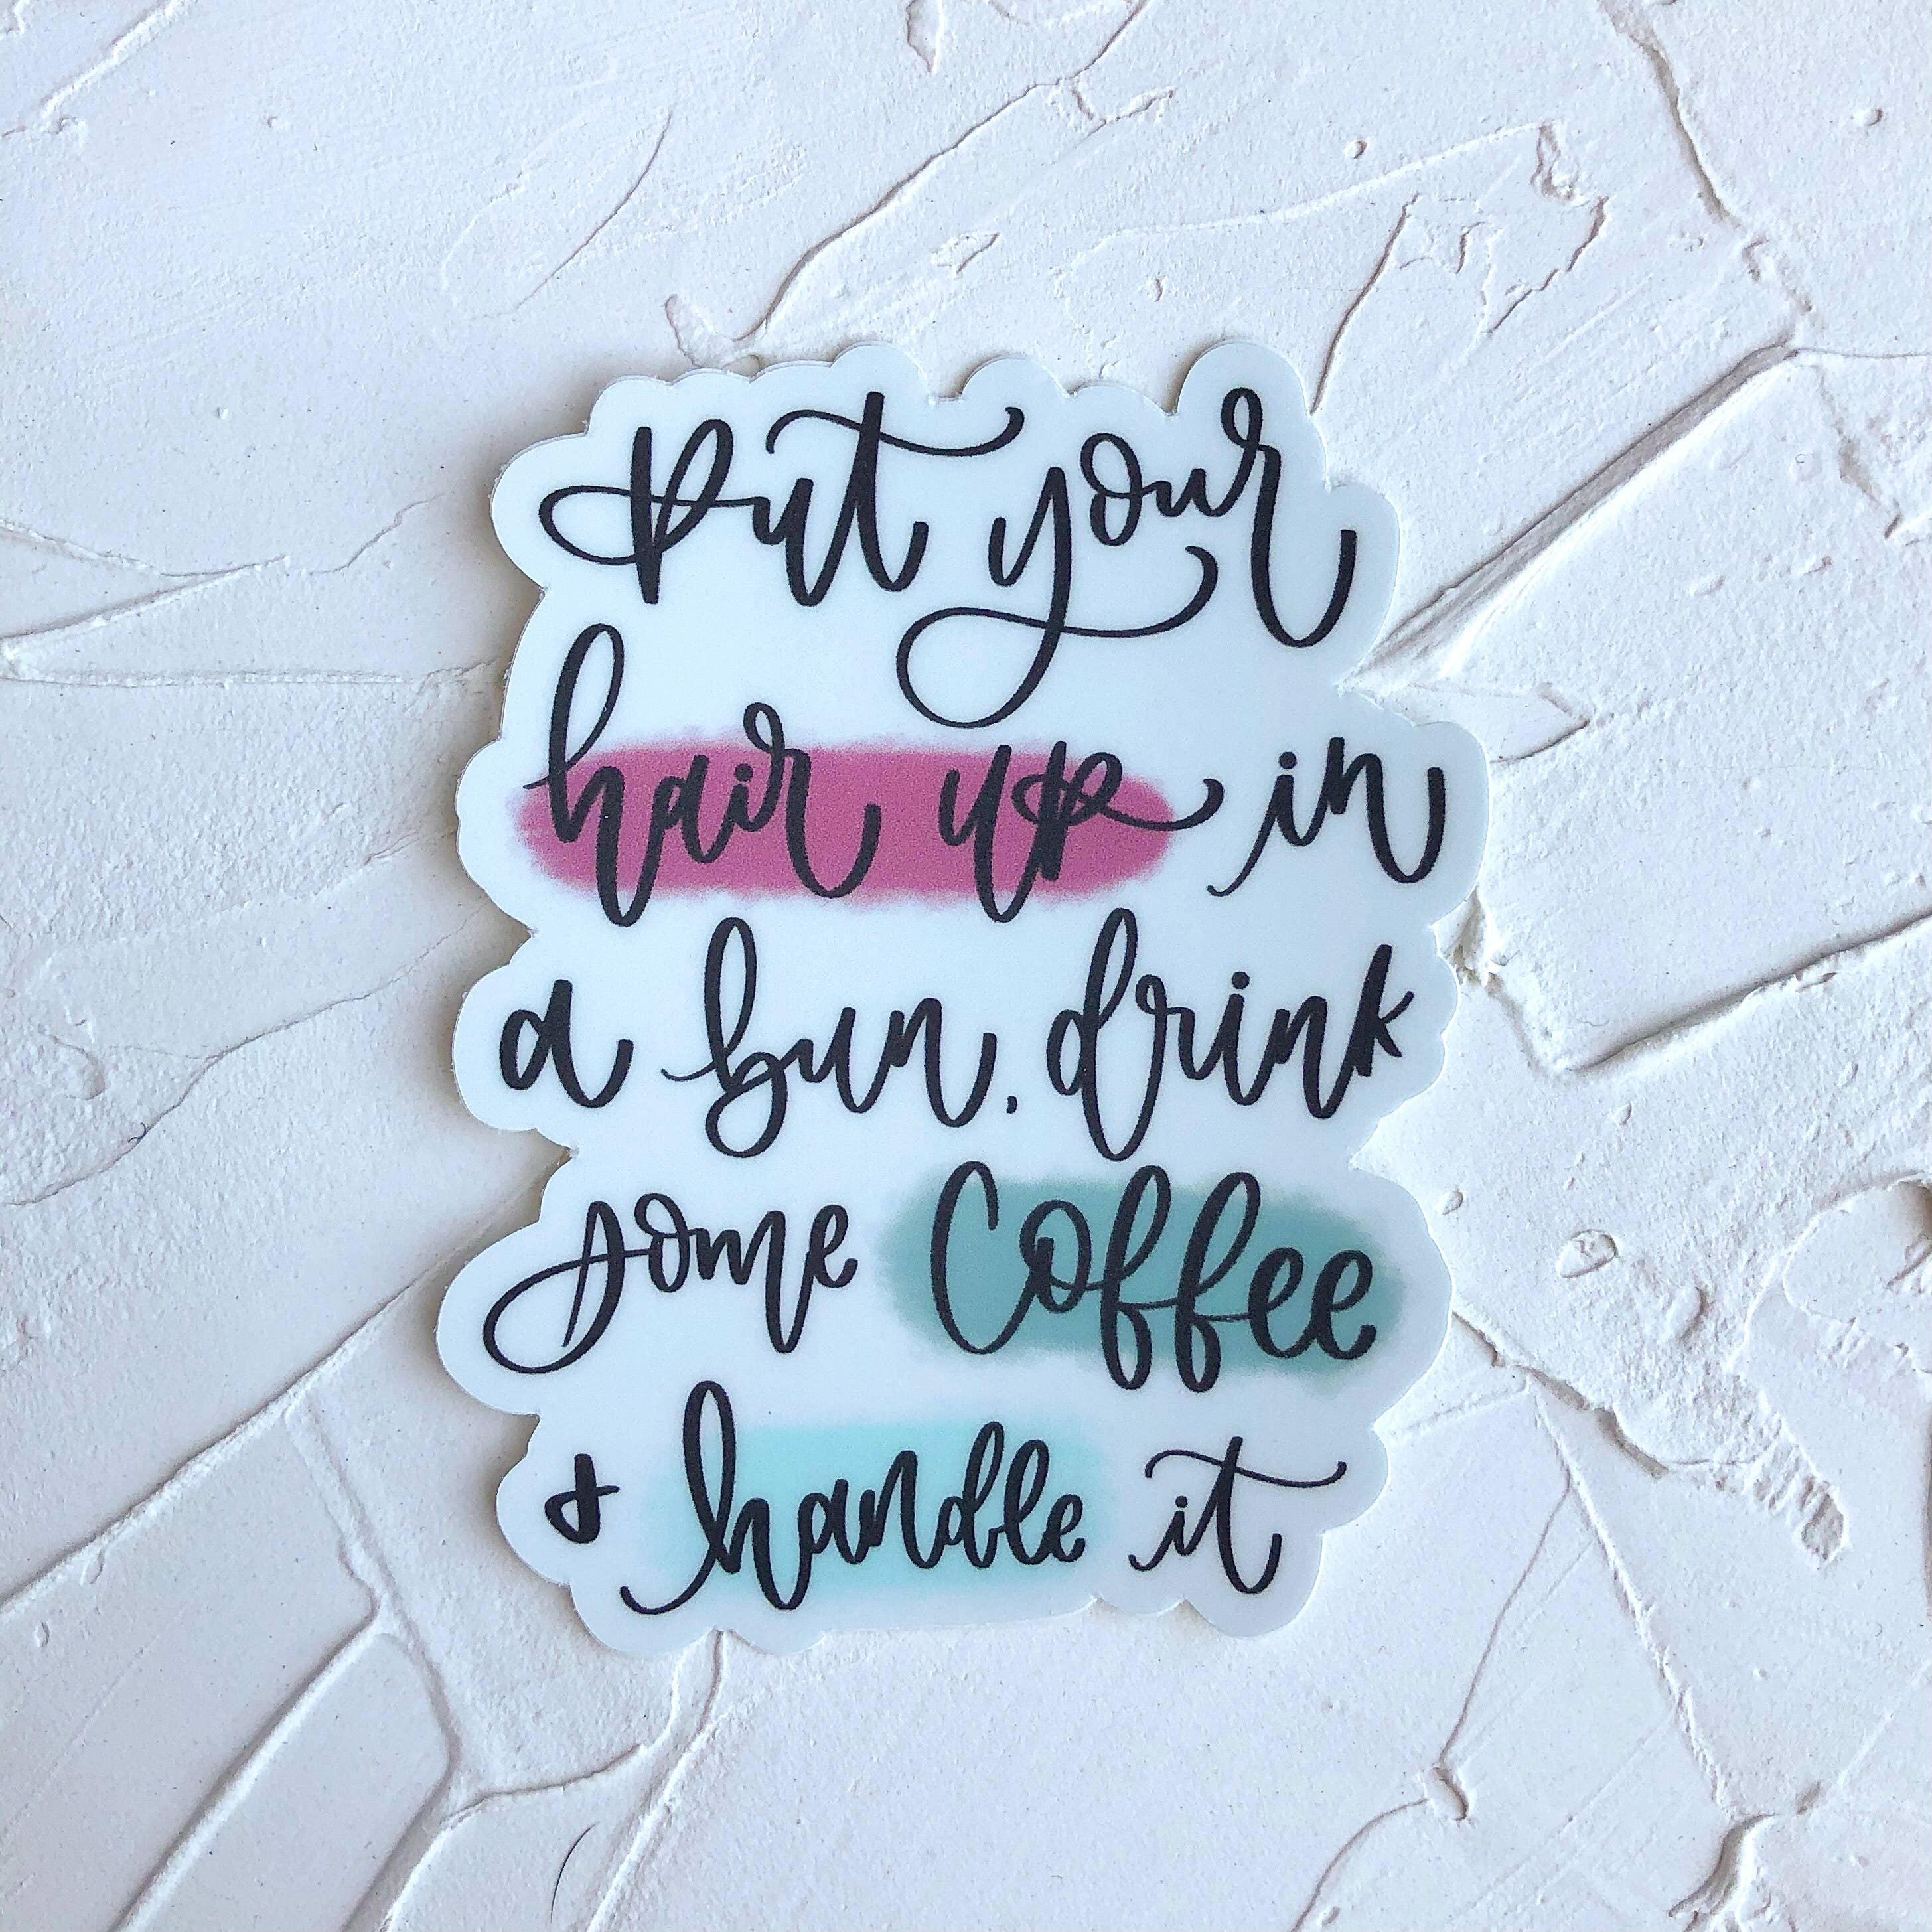 put your
hair up in
a bun, drink
some Coffee
& handle it